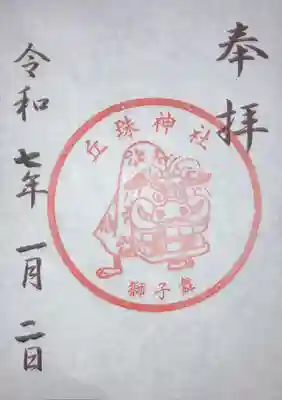 奉拝
丘珠神社
獅子舞
令和七年 一月 二日